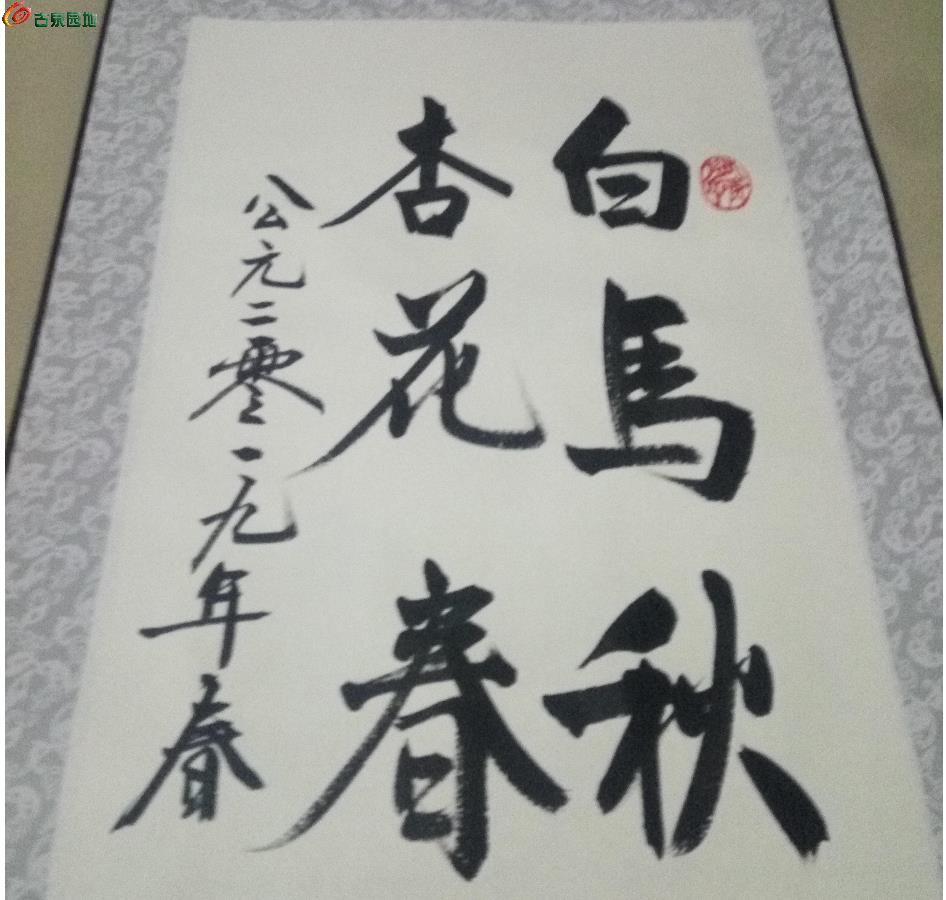 古泉园地
白馬秋
杏花春
公元二零一九年春